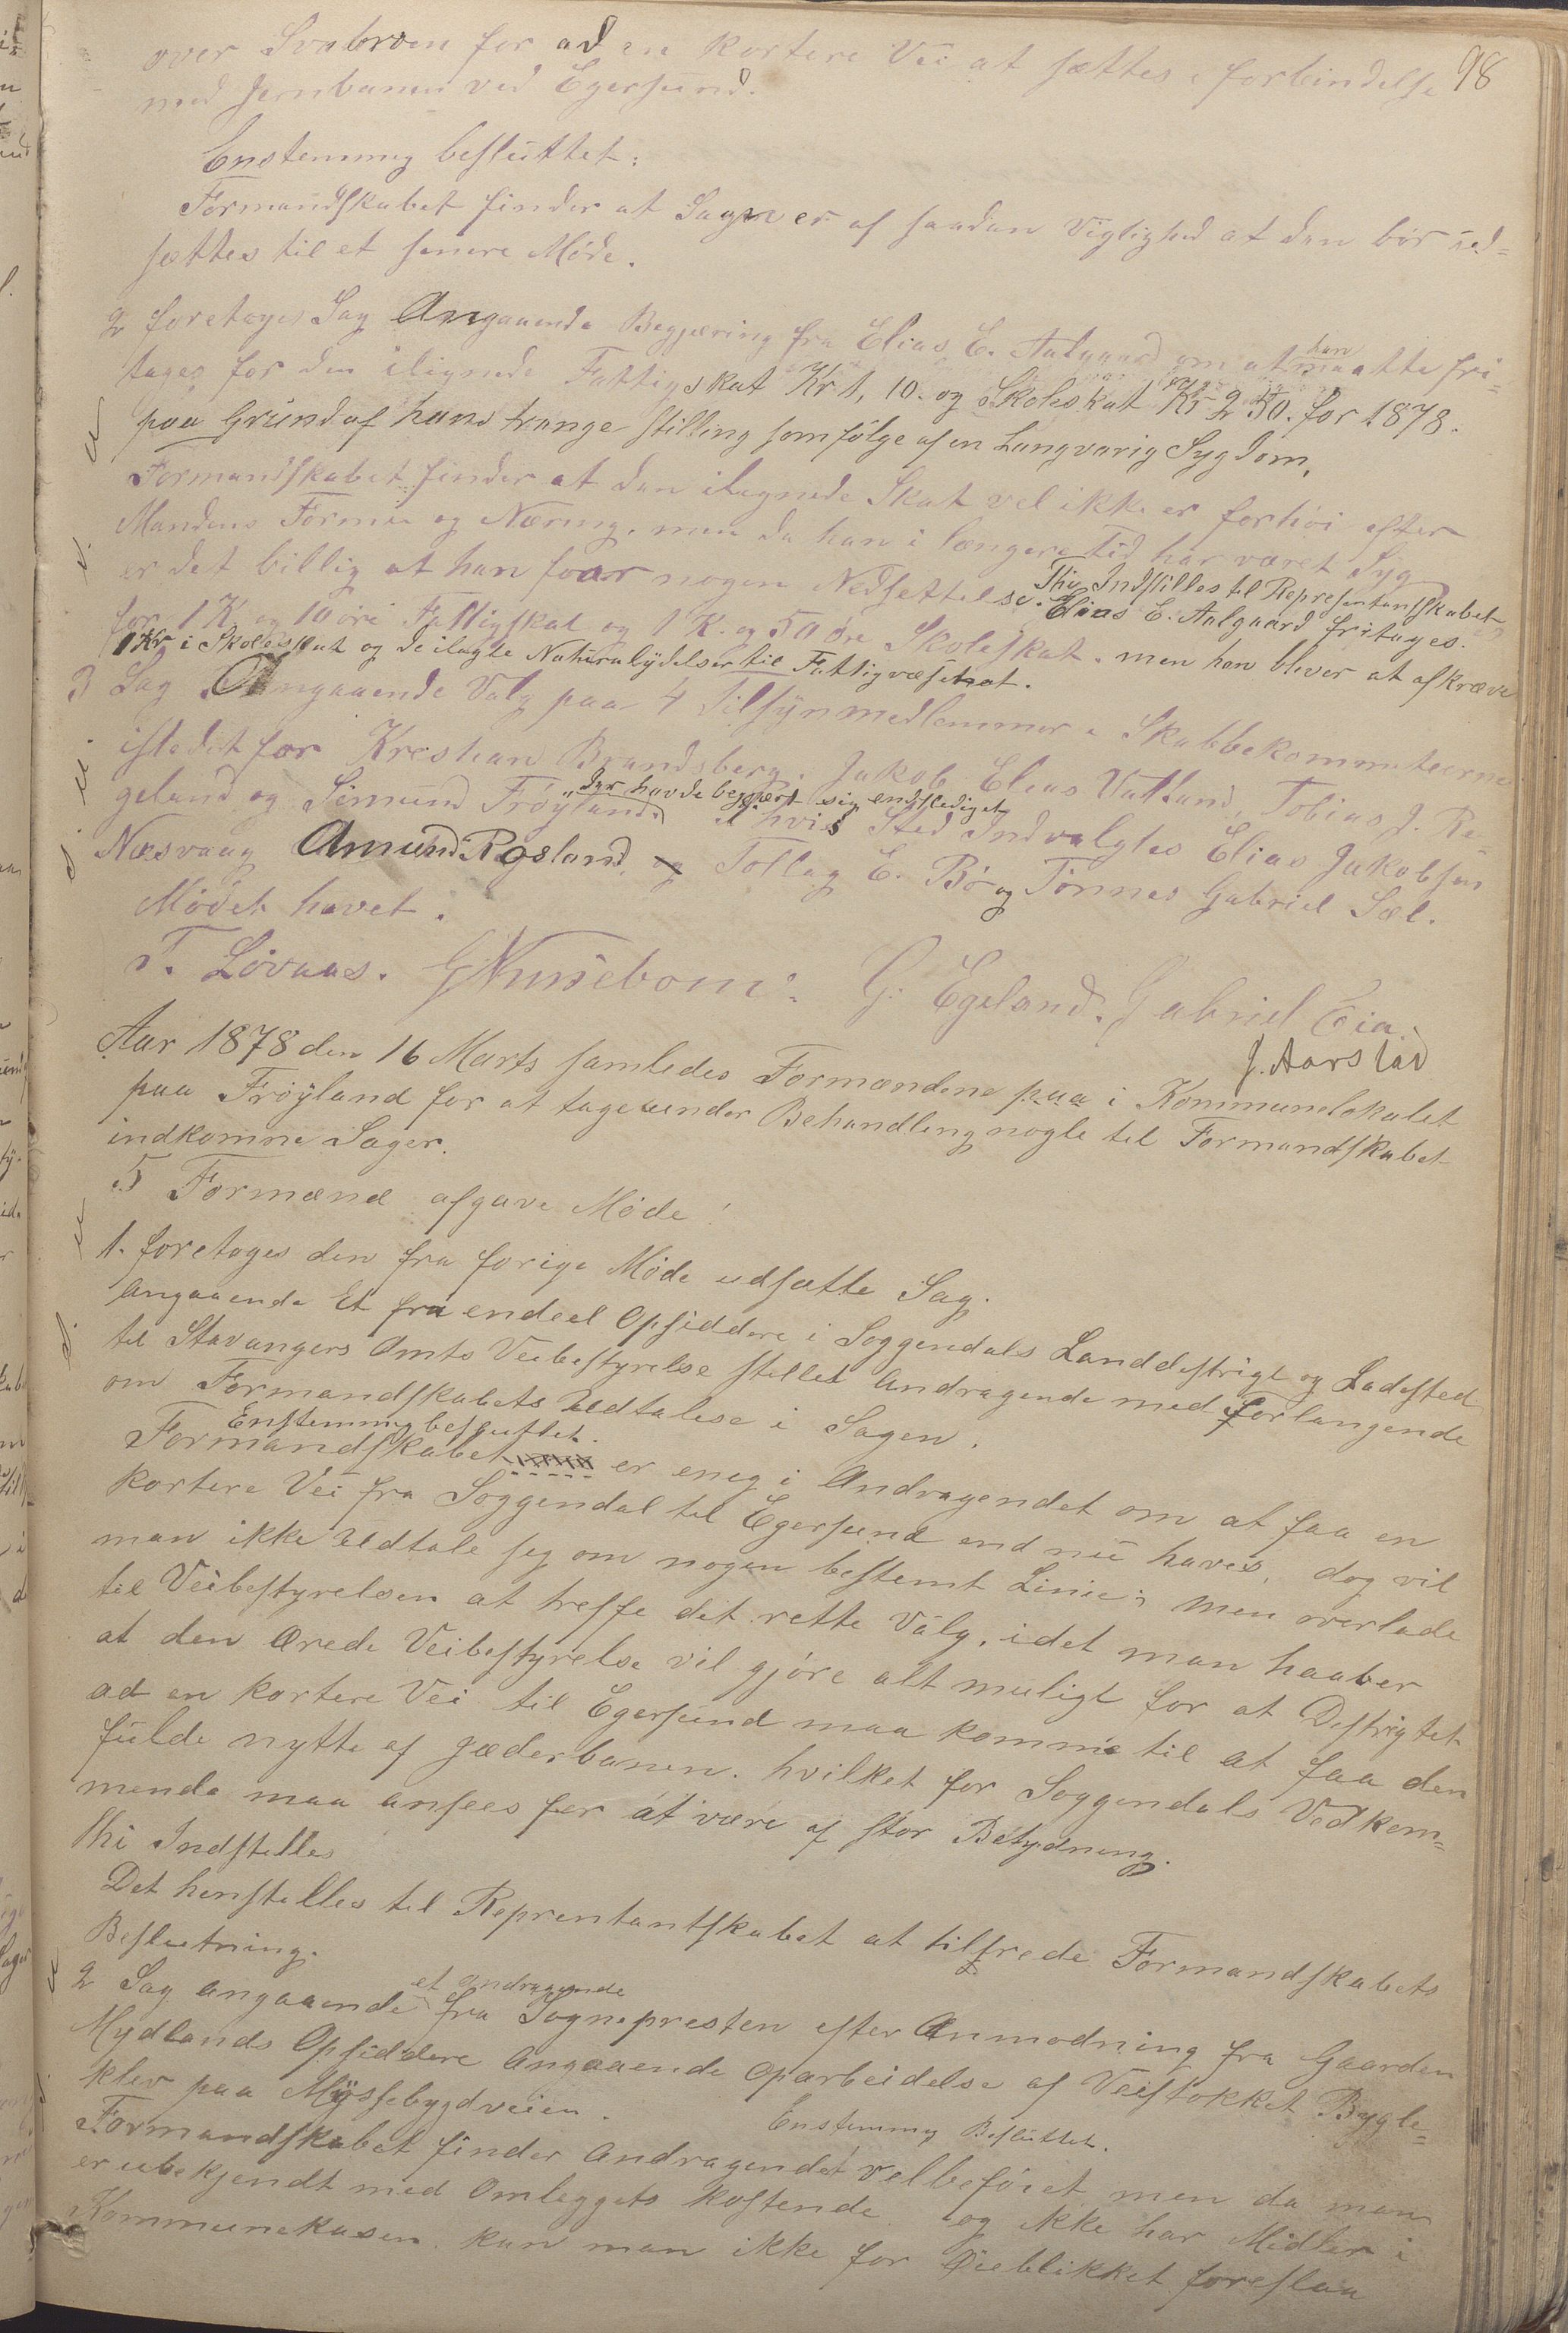 98
over Svabroen for ad en kortere Vei at sættes i forbindelse
med Jernbanen ved Egersund.
Enstemmig besluttet:
Formandskabet finder at Sagen er af saadan Vigtighed at den bør ud-
sættes til et senere Møde.
2 foretoges Sag Angaaende Begjæring fra Elias E. Aalgaard om at han maatte fri-
tages for den ilignede Fattigskat Kr 1, 10. og Skoleskat Kr 2 50. for 1878.
paa Grund af hans trange Stilling som følge af en Langvarig Sygdom,
Formandskabet finder at den ilagnede Skat vel ikke er forhøi efter
Mandens Formue og Næring, men da han i længere Tid har været Syg
er det billig at han faar nogen Nedsettelse. Thi Indstilles til Repræsentantskabet Elias E. Aalgaard fritages.
for 1 K og 10 øre Fattigskat og 1 K. og 50 øre Skoleskat. men han bliver at afkræve
1 Kr i Skoleskat og de ilagte Naturalydelser til Fattigvæsenet.
3 Sag Angaaende Valg paa 4 Tilsynmedlemmer i Skabbekommiteerne
istedet for Kreshan Brandsberg, Jakob Elias Vatland, Tobias J. Re-
geland og Simund Frøyland „der havde begjært sig endslediget" i hvis Sted Indvalgtes Elias Jakobsen
Næsvaag Amund Rosland, Tollag E. Bø og Tønnes Gabriel Sæl.
Mødet hævet.
T. Løvaas. G. Nuisebom. G. Egeland. Gabriel Eia.
J. Aarstad
Aar 1878 den 16 Marts samledes Formændene paa i Kommunelokalet
paa Frøyland for at tage under Behandling nogle til Formandskabet
indkomne Sager.
5 Formænd afgave Møde!
1. foretoges den fra forige Møde udsætte Sag.
Angaaende Et fra endeel Opsiddere i Soggendals Landdistrigt og Ladested
til Stavangers Amts Veibestyrelse stillet Andragende med Forlangende
om Formandskabets Udtalese i Sagen.
Enstemmig besluttet.
Formandskabet er eneg i Andragendet om at faa en
kortere Vei fra Soggendal til Egersund end nu haves, dog vil
man ikke Udtale seg om nogen bestemt Linie; men overlade
til Veibestyrelsen at treffe det rette Valg, idet man haaber
at den Ærede Veibestyrelse vil gjøre alt muligt for at Destrigtet
ad en kortere Vei til Egersund maa komme til at faa den
fulde nytte af Jæderbanen. hvilket for Soggendals Vedkom-
mende maa ansees for at være af stor Betydning.
Thi Indstelles
Det henstelles til Reprentantskabet at tilstrede Formandskabets
Beslutning.
2 Sag angaaende et Andragende fra Sognepresten efter Anmodning fra Gaarden
Mydlands Opsiddere Angaaende Oparbeidelse af Veistøkket Bygle-
klev paa Myssebygdveien.
Enstemmig Besluttet.
Formandskabet finder Andragendet velbeføiet men da man
er ubekjendt med Omleggets kostende og ikke har Midler i
Kommunekassen kan man ikke for Øieblikket foreslaa